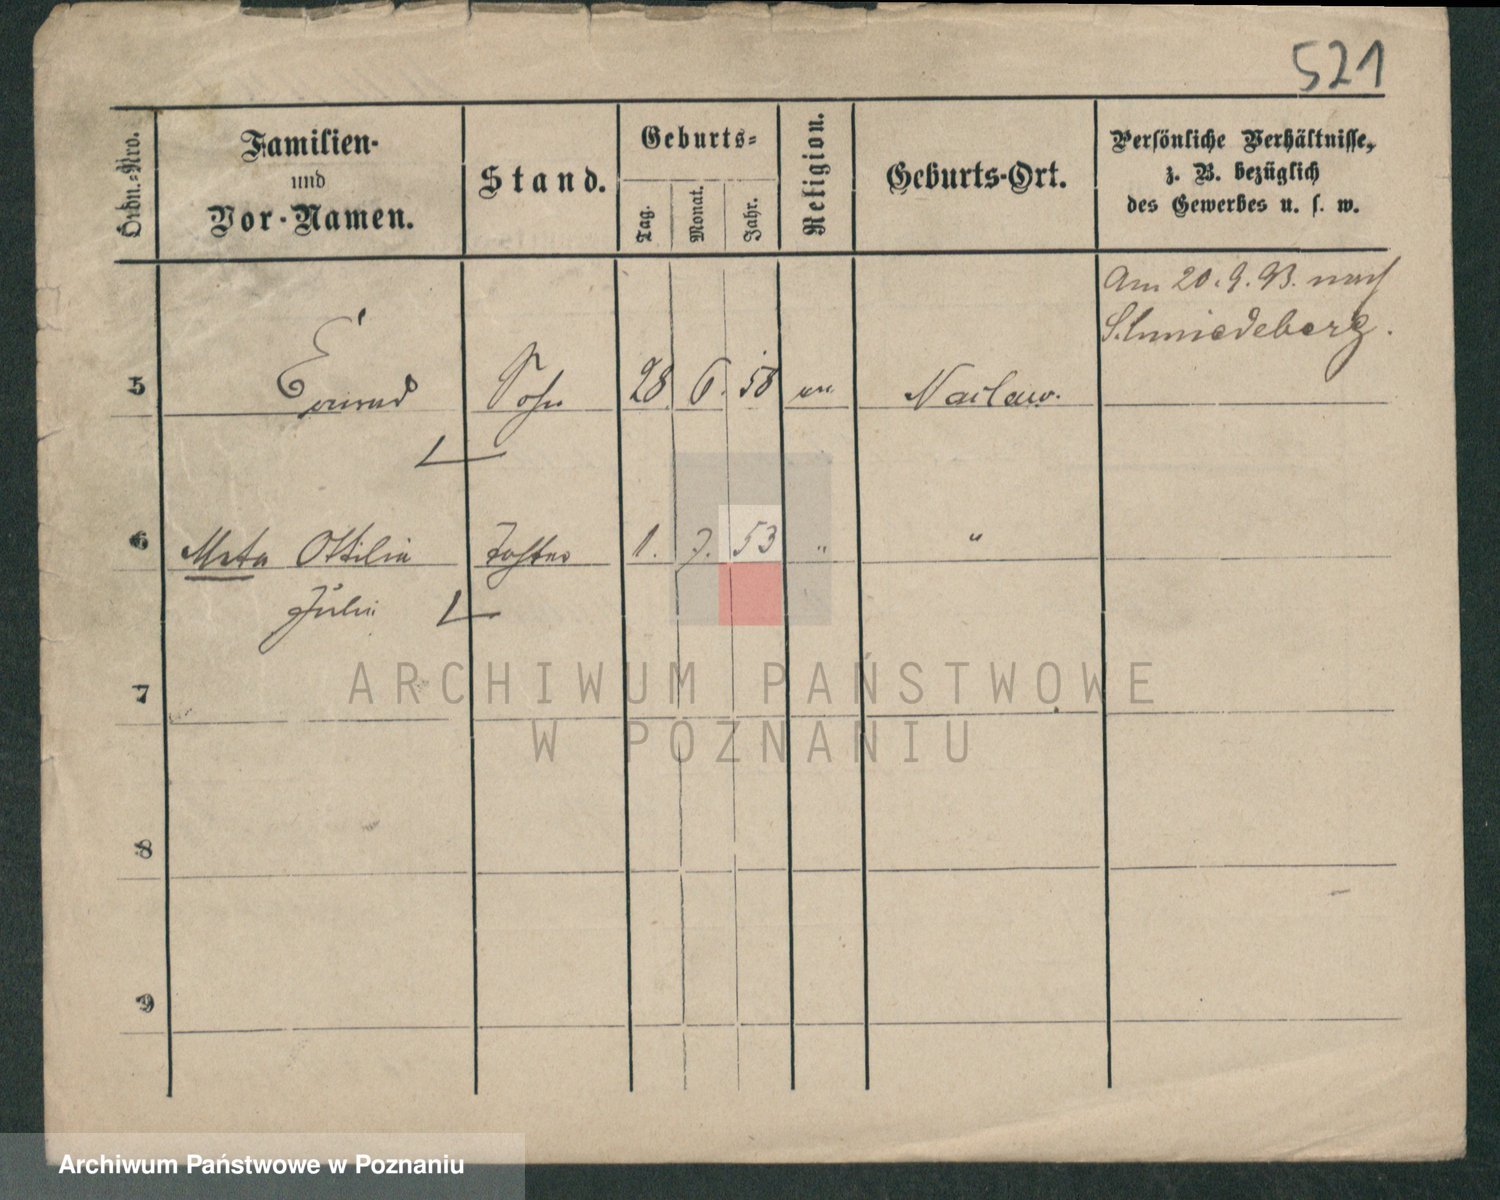 521
Ordn.=Nro.
Familien-
und
Vor-Namen.
Stand.
Geburts=
Tag.
Monat.
Jahr.
Religion.
Geburts-Ort.
Persönliche Verhältnisse,
z. B. bezüglich
des Gewerbes u. s. w.
Am 20. 9. 93. nach
Schmiedeberg.
5
Sohn
28. 6. 58
ev.
6
Meta Ottilie
Tochter
1. 7. 53
"
"
Julie
7
8
9
ARCHIWUM PAŃSTWOWE
W POZNANIU
Archiwum Państwowe w Poznaniu